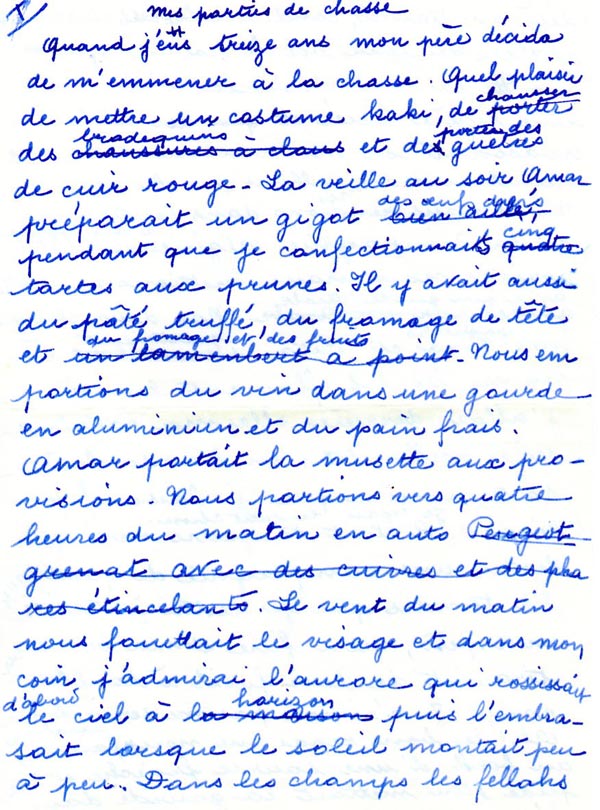 I
mes parties de chasse
Quand j'eus treize ans mon père décida
de m'emmener à la chasse. Quel plaisir
chausser
de mettre un costume kaki, de porter
bradequins portes des
des chaussures à clous et des guêtres
de cuir rouge - La veille au soir Amar
des œufs durs
préparait un gigot bien aillé,
cinq
pendant que je confectionnais quatre
tartes aux prunes. Il y avait aussi
du pâté truffé, du fromage de tête
du fromage et des fruits
et un camenbert à point. Nous em
portions du vin dans une gourde
en aluminium et du pain frais.
Amar portait la musette aux pro-
visions. Nous partions vers quatre
heures du matin en auto Peugiot
grenat avec des cuivres et des pha
res étincelants. Le vent du matin
nous fouettait le visage et dans mon
coin j'admirai l'aurore qui rossissait
d'abord horizon
le ciel à la maison puis l'embra-
sait lorsque le soleil montait peu
à peu. Dans les champs les fellahs